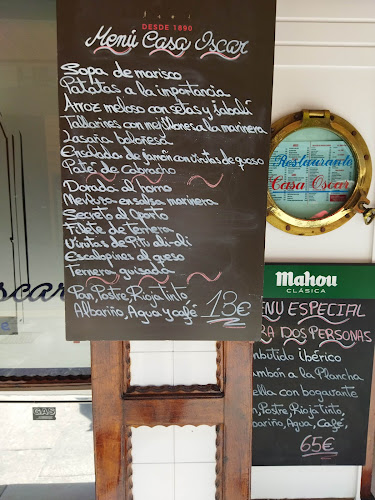 DESDE 1890
Menú Casa Iscar
Sopa de marisco
Patatas a la importancia
Arroz meloso con setas y jabalí
Tallarines con mejillones a la marinera
Lasaña boloñesa
Ensalada de jamón con virutas de queso
Paté de cabracho
Dorada al horno
Merluza en salsa marinera
Secreto al Oporto
Filete de ternera
Virutas de Pitu ali-oli
Escalopines al queso
Ternera guisada
Pan, Postre, Rioja tinto,
Albariño, Agua y café 13€
Restaurante
Casa Oscar
Mahou
CLÁSICA
ENU ESPECIAL
RA DOS PERSONAS
mbutido ibérico
ambón a la Plancha
ella con bogavante
an, Postre, Rioja Tinto,
bariño, Agua, Café,
65€
scar
GAS